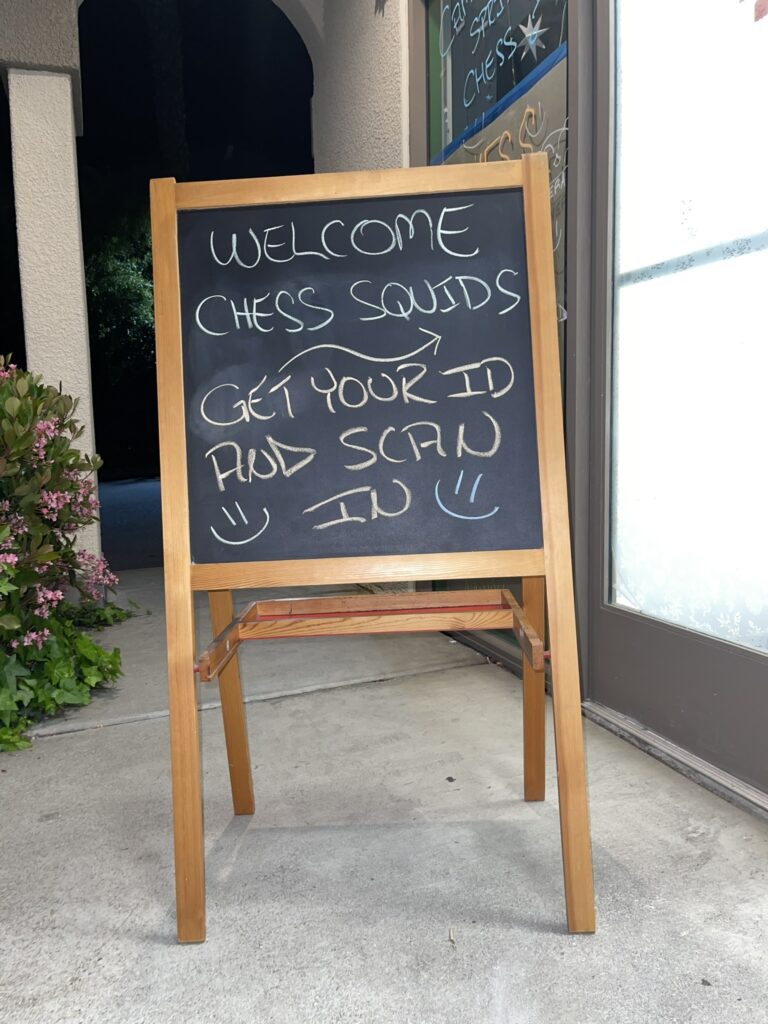 WELCOME
CHESS SQUIDS
GET YOUR ID
AND SCAN
IN
CHESS